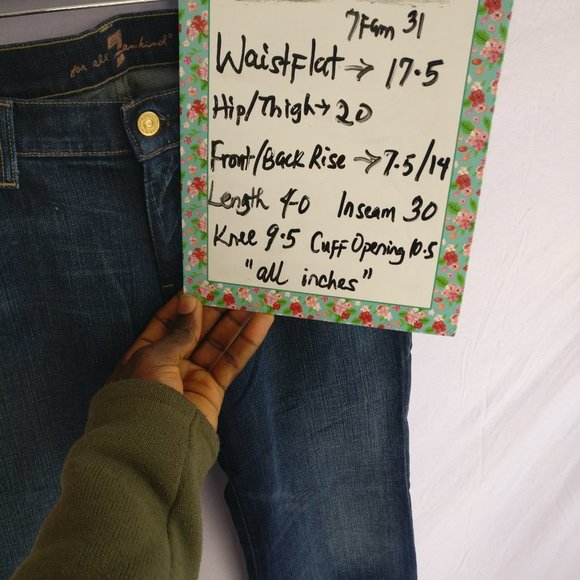 7Fam 31
Waist Flat → 17.5
Hip/Thigh → 20
Front/Back Rise → 7.5/14
Length 40 Inseam 30
Knee 9.5 Cuff Opening 10.5
"all inches"
for all mankind